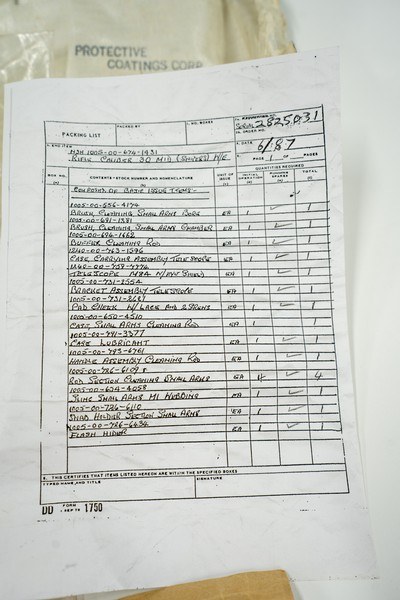 PROTECTIVE
COATINGS CORP
PACKING LIST
PACKED BY
NO. BOXES
SERIAL 2825031
ORDER NO.
1. END ITEM
NSN 1005-00-674-1431
RIFLE CALIBER 30 M1C (SNIPERS) W/E
4. DATE 6/87
5. PAGE 1 OF PAGES
BOX NO.
CONTENTS - STOCK NUMBER AND NOMENCLATURE
UNIT OF ISSUE
QUANTITIES REQUIRED
INITIAL OPERATION
RUNNING SPARES
TOTAL
COMPOSED OF BASIC ISSUE ITEMS-
1005-00-556-4174
BRUSH, CLEANING SMALL ARMS BORE EA 1 ✓ 1
1005-00-691-1381
BRUSH, CLEANING SMALL ARMS CHAMBER EA 1 ✓ 1
BUFFER CLEANING ROD EA 1 ✓ 1
1240-00-763-1596
CASE CARRYING ASSEMBLY TELESCOPE EA 1 ✓ 1
1240-00-759-7776
TELESCOPE M84 W/EYE SHIELD EA 1 ✓ 1
1005-00-731-2554
BRACKET ASSEMBLY TELESCOPE EA 1 ✓ 1
1005-00-731-2687
PAD CHEEK W/LACE AND 2 SCREWS EA 1 ✓ 1
1005-00-650-4510
CASE, SMALL ARMS CLEANING ROD EA 1 ✓ 1
1005-00-791-3377
CASE LUBRICANT EA 1 ✓ 1
1005-00-793-6761
HANDLE ASSEMBLY CLEANING ROD EA 1 ✓ 1
1005-00-726-6109
ROD SECTION CLEANING SMALL ARMS EA 4 ✓ 4
1005-00-654-4058
SLING SMALL ARMS M1 WEBBING EA 1 ✓ 1
1005-00-726-6110
SWAB HOLDER SECTION SMALL ARMS EA 1 ✓ 1
1005-00-726-6434
FLASH HIDER EA 1 ✓ 1
6. THIS CERTIFIES THAT ITEMS LISTED HEREON ARE WITHIN THE SPECIFIED BOXES
TYPED NAME AND TITLE
SIGNATURE
DD FORM 1 SEP 70 1750